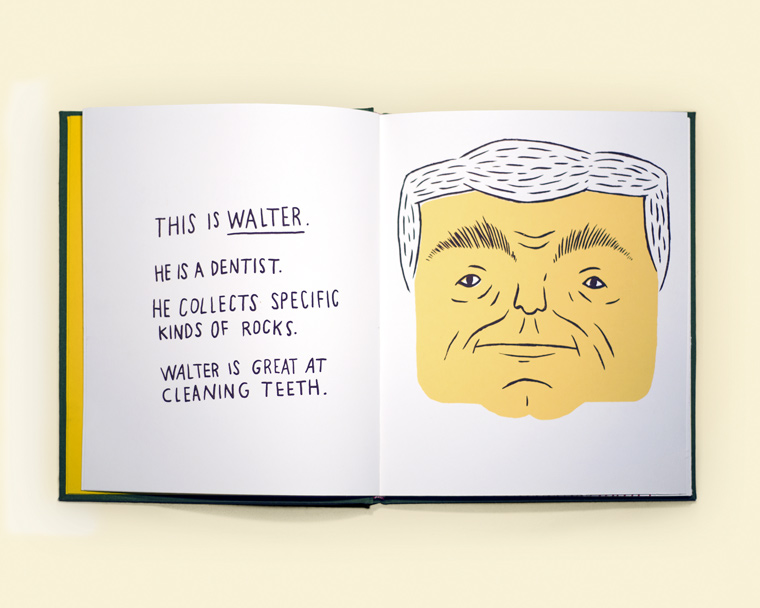 THIS IS WALTER.
HE IS A DENTIST.
HE COLLECTS SPECIFIC
KINDS OF ROCKS.
WALTER IS GREAT AT
CLEANING TEETH.